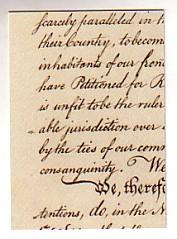 scarcely paralleled in t
their Country, to becom
inhabitants of our fron
have Petitioned for R
is unfit to be the ruler
able jurisdiction over
by the ties of our comm
consanguinity. We
We, theref
tentions, do, in the N